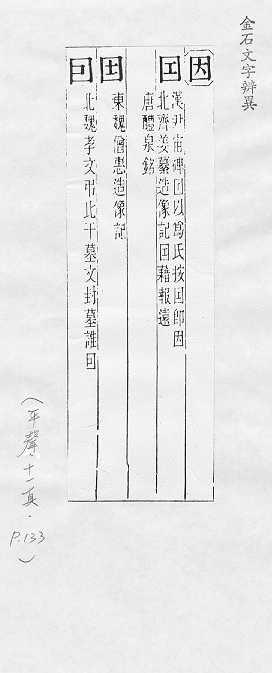 金石文字辨異
因
漢尹宙碑囙以為氏按囙即因
囯
北齊姜纂造像記囯藉報遠
唐醴泉銘
東魏僧惠造像記
囙
北魏孝文弔比干墓文封墓誰囙
(平聲.十一真.
P.133)